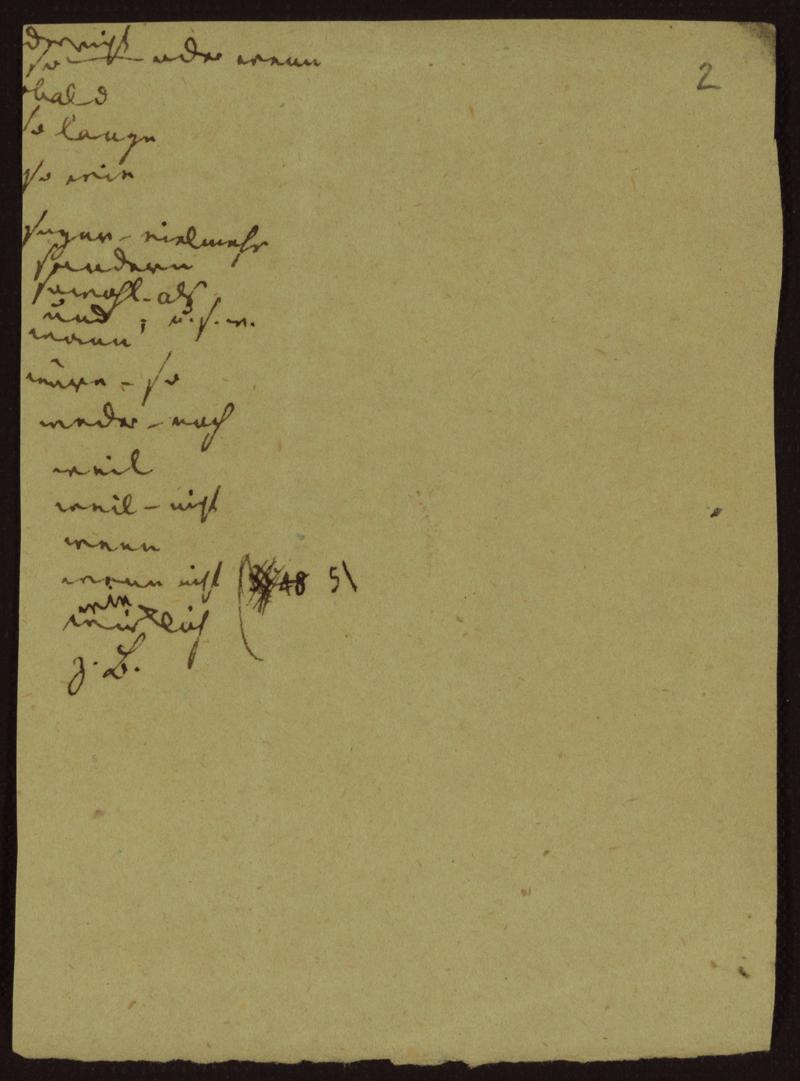 2
so oder wenn
obald
so lange
so wie
sogar - vielmehr
sondern
sowohl - als
und, u. s. w.
wann
wäre - so
weder - noch
weil
weil - nicht
wenn
wenn nicht
wie (48 51
wirklich
z. B.